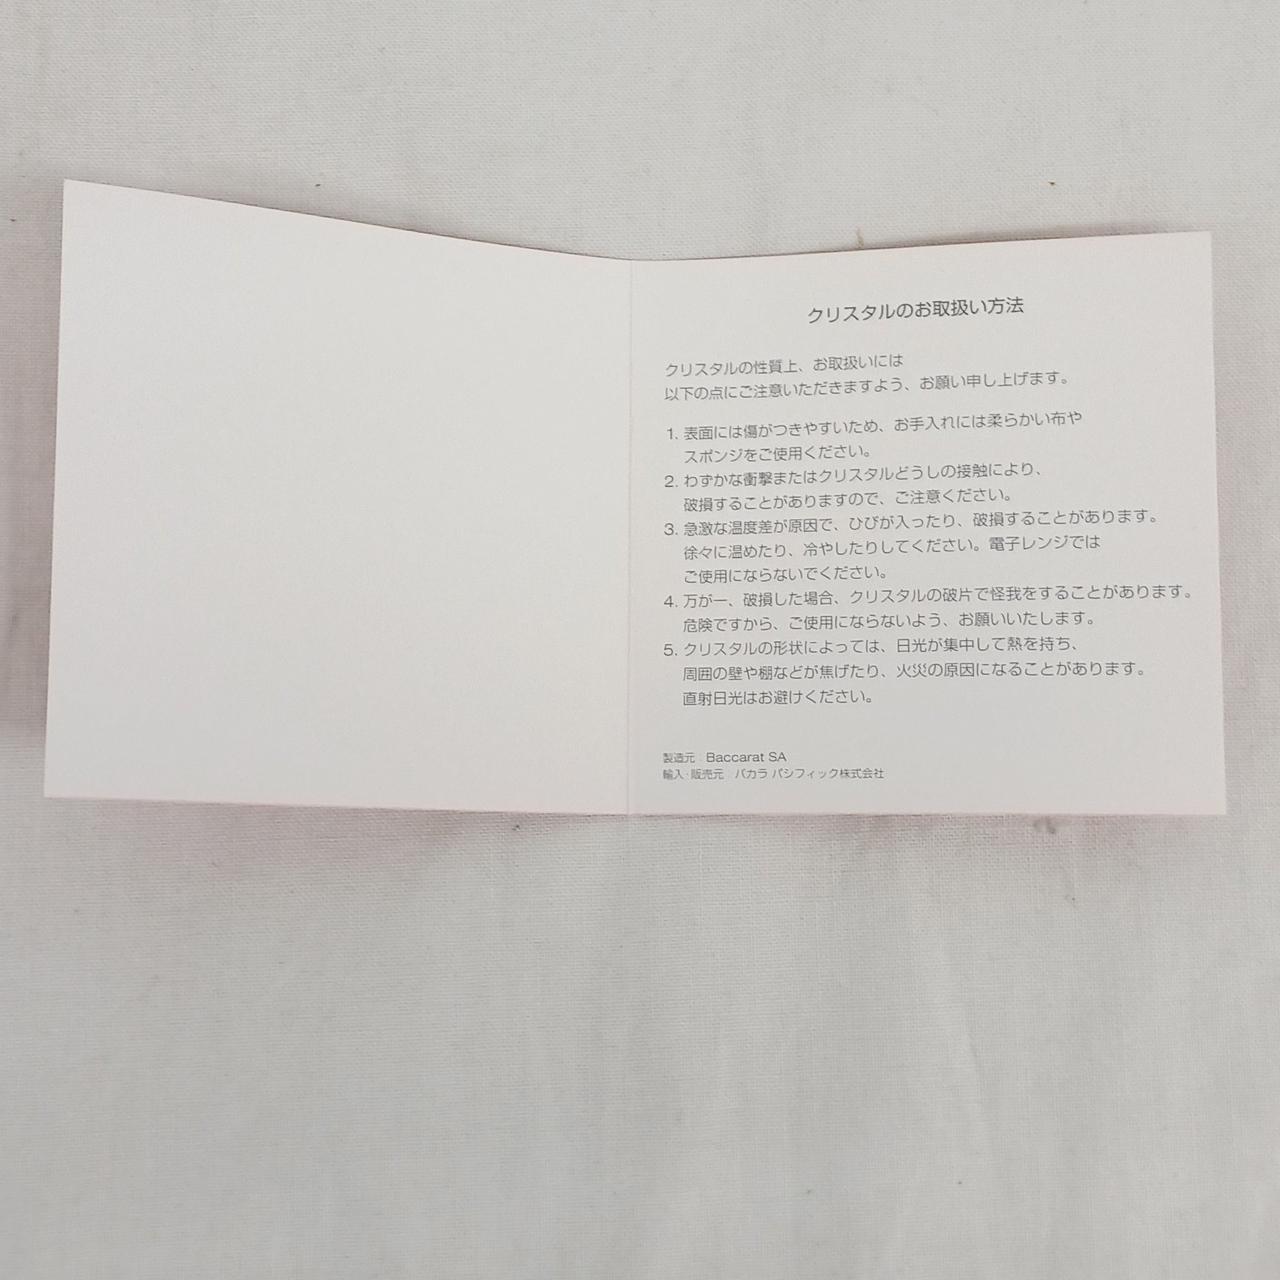 クリスタルのお取扱い方法
クリスタルの性質上、お取扱いには
以下の点にご注意いただきますよう、お願い申し上げます。
1. 表面には傷がつきやすいため、お手入れには柔らかい布や
スポンジをご使用ください。
2. わずかな衝撃またはクリスタルどうしの接触により、
破損することがありますので、ご注意ください。
3. 急激な温度差が原因で、ひびが入ったり、破損することがあります。
徐々に温めたり、冷やしたりしてください。電子レンジでは
ご使用にならないでください。
4. 万が一、破損した場合、クリスタルの破片で怪我をすることがあります。
危険ですから、ご使用にならないよう、お願いいたします。
5. クリスタルの形状によっては、日光が集中して熱を持ち、
周囲の壁や棚などが焦げたり、火災の原因になることがあります。
直射日光はお避けください。
製造元：Baccarat SA
輸入・販売元：バカラ パシフィック株式会社